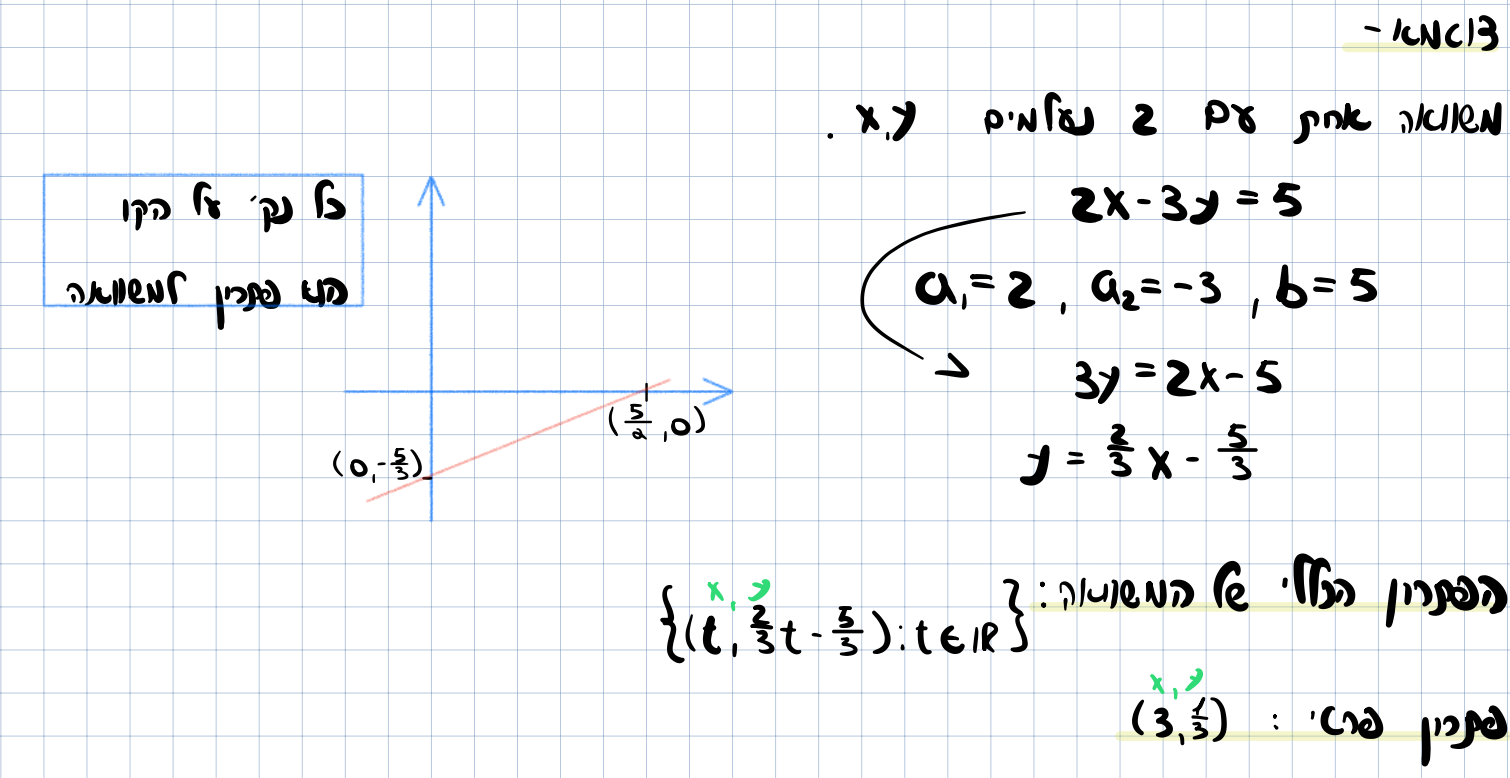 דוגמא -
משוואה אחת עם 2 נעלמים x,y .
2x-3y=5
a₁=2 , a₂=-3 , b=5
3y=2x-5
y = 2/3 x - 5/3
כל נק' על הקו
הוא פתרון למשוואה
(5/2,0)
(0,-5/3)
הפתרון הכללי של המשוואה:
x,y
{(t, 2/3 t - 5/3):t∈ℝ}
x,y
פתרון פרטי : (3,1/3)